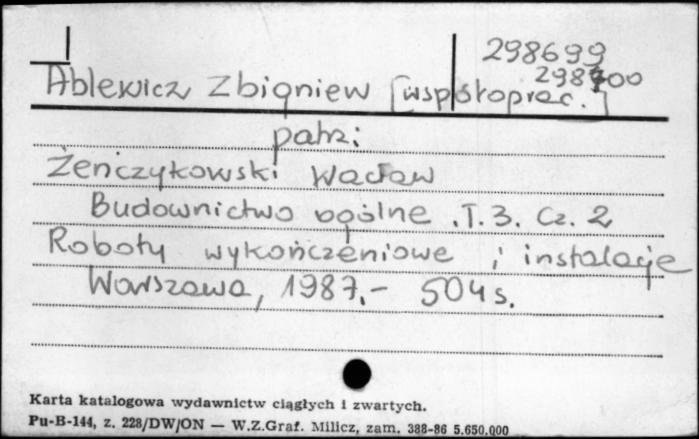 298699
298700
Ablewicz Zbigniew [współoprac.]
patrz:
Żenczykowski Wacław
Budownictwo ogólne. T. 3. Cz. 2
Roboty wykończeniowe i instalacje
Warszawa, 1987.- 504 s.
Karta katalogowa wydawnictw ciągłych i zwartych.
Pu-B-144, z. 228/DW/ON — W.Z.Graf. Milicz, zam. 388-86 5.650.000